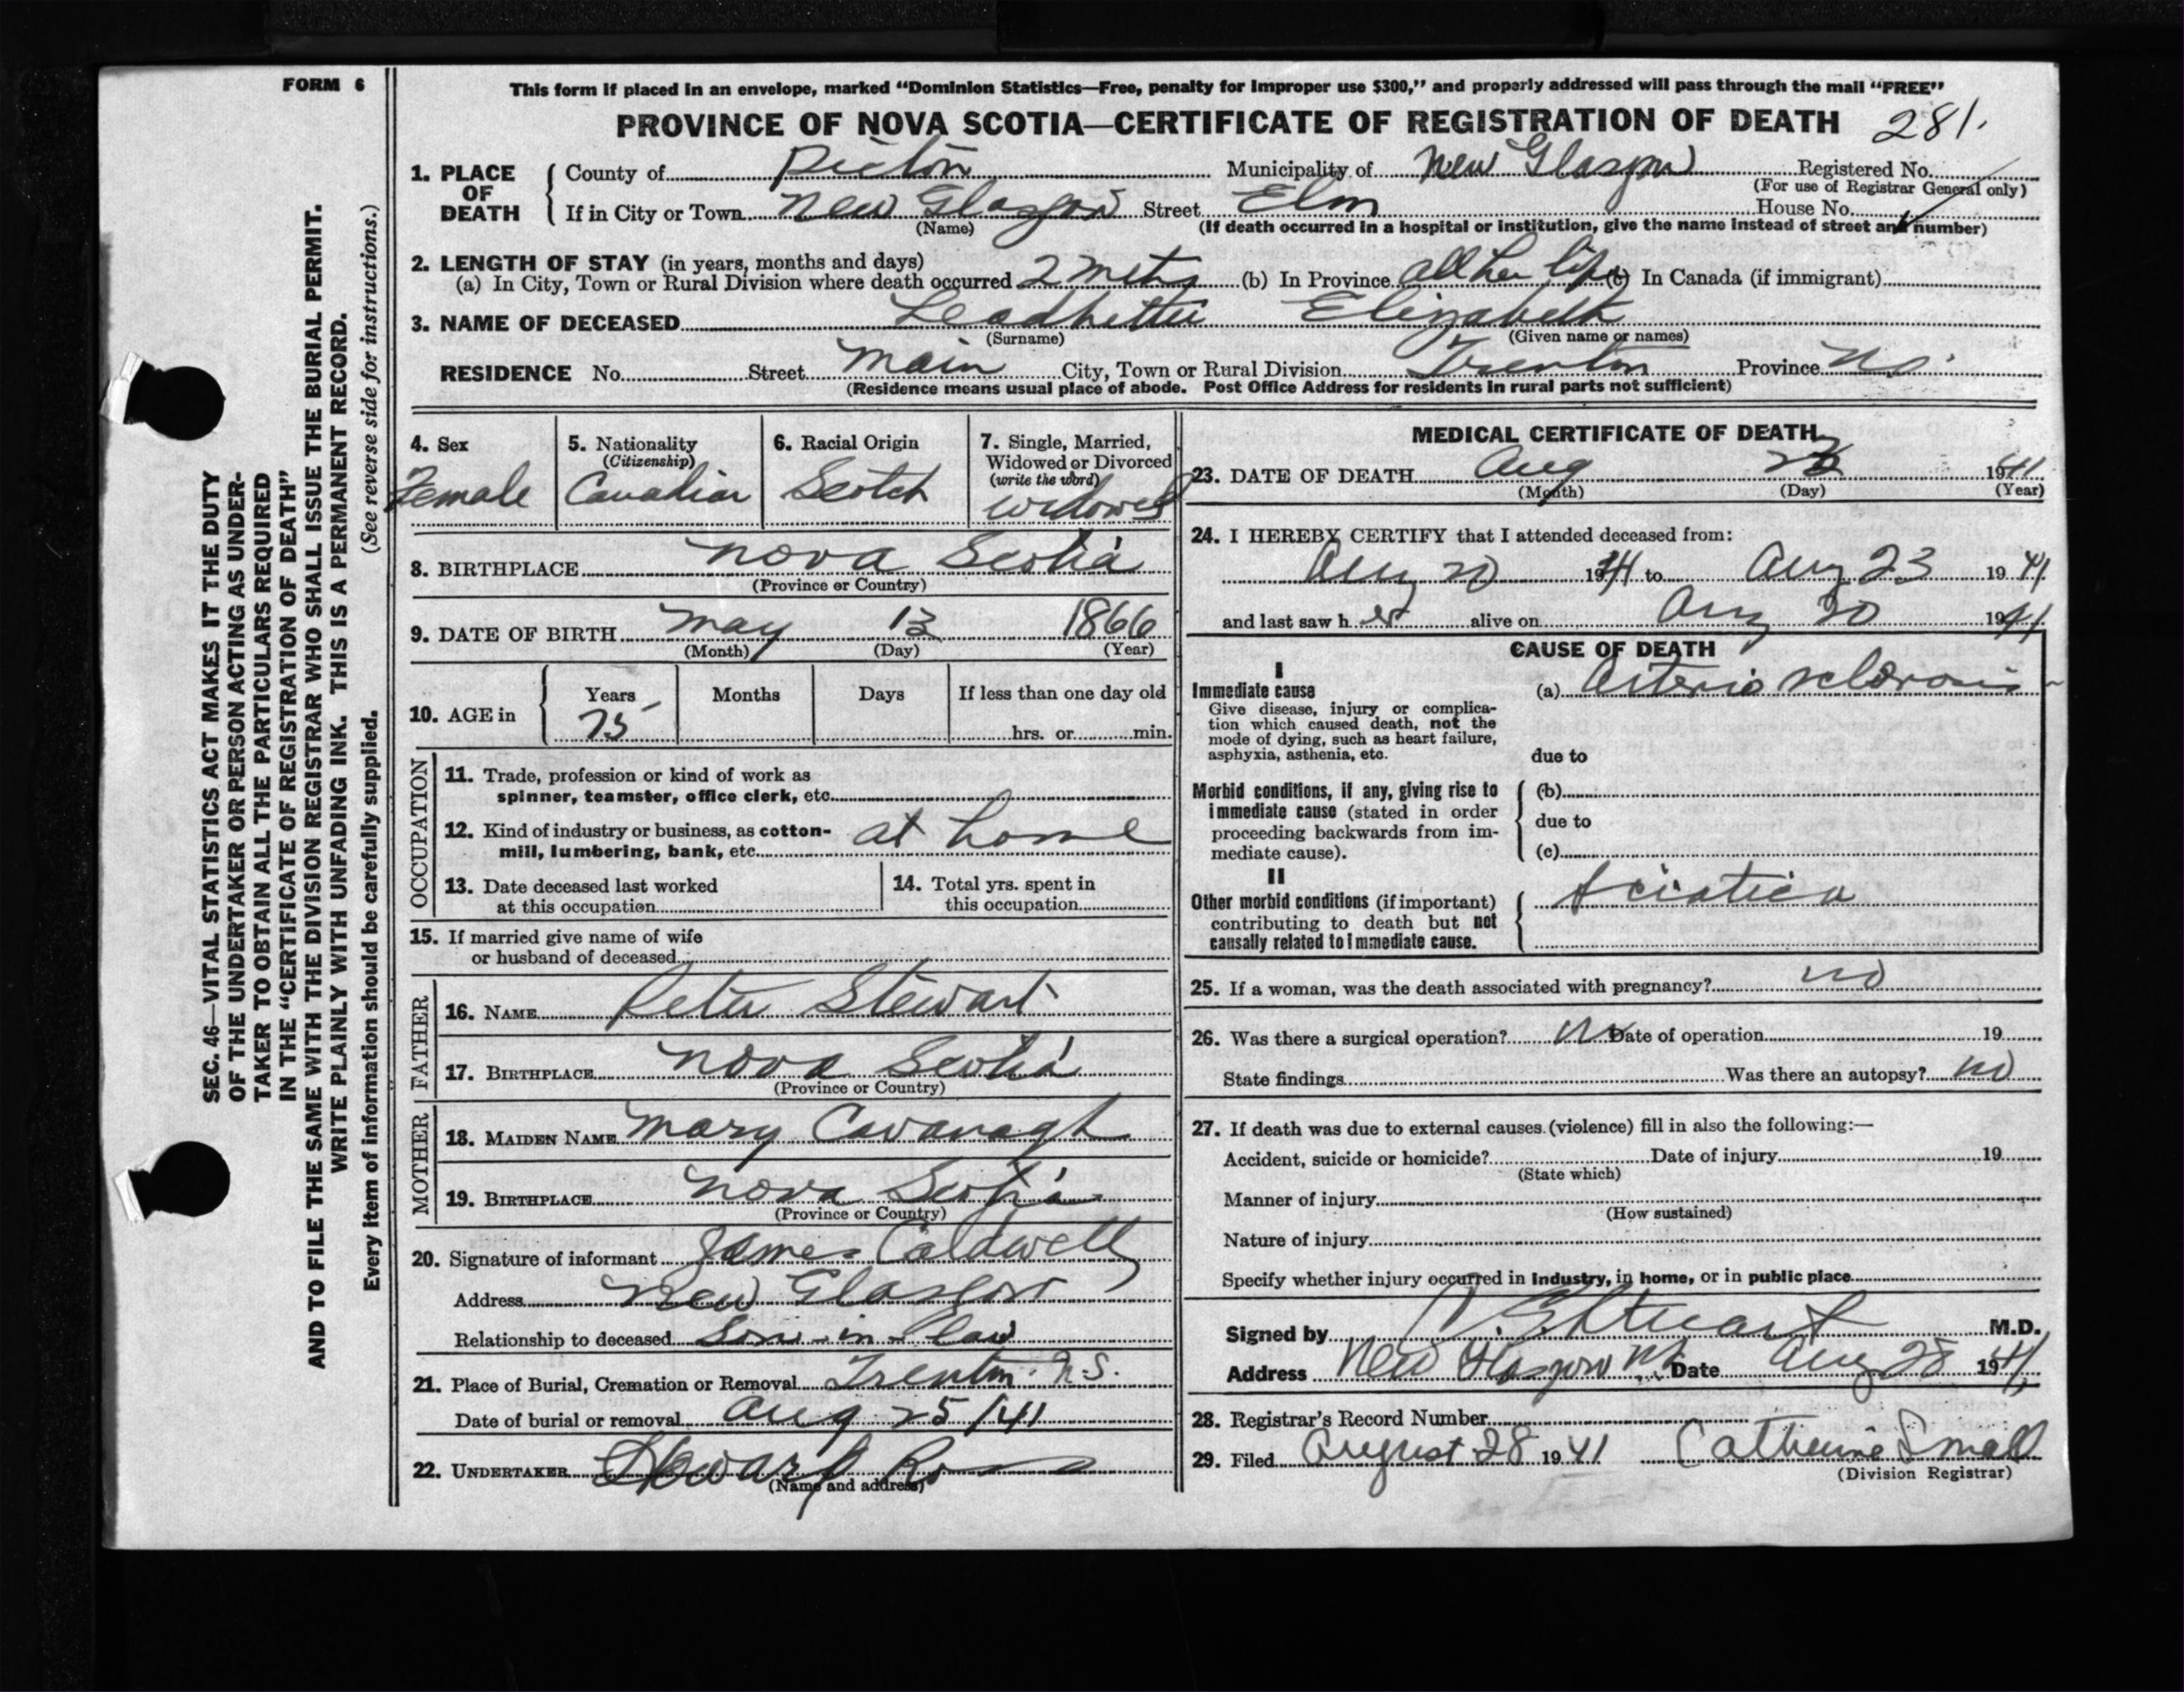 FORM 6
This form if placed in an envelope, marked "Dominion Statistics—Free, penalty for improper use $300," and properly addressed will pass through the mail "FREE"
PROVINCE OF NOVA SCOTIA—CERTIFICATE OF REGISTRATION OF DEATH 281.
1. PLACE OF DEATH
County of Pictou Municipality of New Glasgow Registered No.
(For use of Registrar General only)
If in City or Town New Glasgow Street Elm House No.
(Name) (If death occurred in a hospital or institution, give the name instead of street and number)
2. LENGTH OF STAY (in years, months and days)
(a) In City, Town or Rural Division where death occurred 2 mths (b) In Province all her life (c) In Canada (if immigrant)
3. NAME OF DECEASED Leadbetter Elizabeth
(Surname) (Given name or names)
RESIDENCE No. Street Main City, Town or Rural Division Trenton Province N.S.
(Residence means usual place of abode. Post Office Address for residents in rural parts not sufficient)
4. Sex
Female
5. Nationality
(Citizenship)
Canadian
6. Racial Origin
Scotch
7. Single, Married,
Widowed or Divorced
(write the word)
widowed
8. BIRTHPLACE Nova Scotia
(Province or Country)
9. DATE OF BIRTH May 13 1866
(Month) (Day) (Year)
10. AGE in
Years Months Days If less than one day old
75 hrs. or min.
OCCUPATION
11. Trade, profession or kind of work as
spinner, teamster, office clerk, etc.
12. Kind of industry or business, as cotton-
mill, lumbering, bank, etc. at home
13. Date deceased last worked
at this occupation
14. Total yrs. spent in
this occupation
15. If married give name of wife
or husband of deceased
FATHER
16. NAME Peter Stewart
17. BIRTHPLACE Nova Scotia
(Province or Country)
MOTHER
18. MAIDEN NAME Mary Cavanagh
19. BIRTHPLACE Nova Scotia
(Province or Country)
20. Signature of informant James Caldwell
Address New Glasgow
Relationship to deceased Son-in-law
21. Place of Burial, Cremation or Removal Trenton. N.S.
Date of burial or removal Aug 25/41
22. UNDERTAKER
(Name and address)
MEDICAL CERTIFICATE OF DEATH
23. DATE OF DEATH Aug 1941
(Month) (Day) (Year)
24. I HEREBY CERTIFY that I attended deceased from:
Aug 20 1941 to Aug 23 1941
and last saw her alive on Aug 20 1941
CAUSE OF DEATH
I
Immediate cause
Give disease, injury or complica-
tion which caused death, not the
mode of dying, such as heart failure,
asphyxia, asthenia, etc.
(a) Arterio sclerosis
due to
Morbid conditions, if any, giving rise to
immediate cause (stated in order
proceeding backwards from im-
mediate cause).
(b)
due to
(c)
II
Other morbid conditions (if important)
contributing to death but not
causally related to immediate cause.
Sciatica
25. If a woman, was the death associated with pregnancy? no
26. Was there a surgical operation? no Date of operation 19
State findings Was there an autopsy? no
27. If death was due to external causes (violence) fill in also the following:—
Accident, suicide or homicide? Date of injury 19
(State which)
Manner of injury
(How sustained)
Nature of injury
Specify whether injury occurred in industry, in home, or in public place
Signed by Stuart M.D.
Address New Glasgow NS Date Aug 28 1941
28. Registrar's Record Number
29. Filed August 28 1941 Catherine Small
(Division Registrar)
SEC. 46—VITAL STATISTICS ACT MAKES IT THE DUTY
OF THE UNDERTAKER OR PERSON ACTING AS UNDER-
TAKER TO OBTAIN ALL THE PARTICULARS REQUIRED
IN THE "CERTIFICATE OF REGISTRATION OF DEATH"
AND TO FILE THE SAME WITH THE DIVISION REGISTRAR WHO SHALL ISSUE THE BURIAL PERMIT.
WRITE PLAINLY WITH UNFADING INK. THIS IS A PERMANENT RECORD.
Every item of information should be carefully supplied. (See reverse side for instructions.)